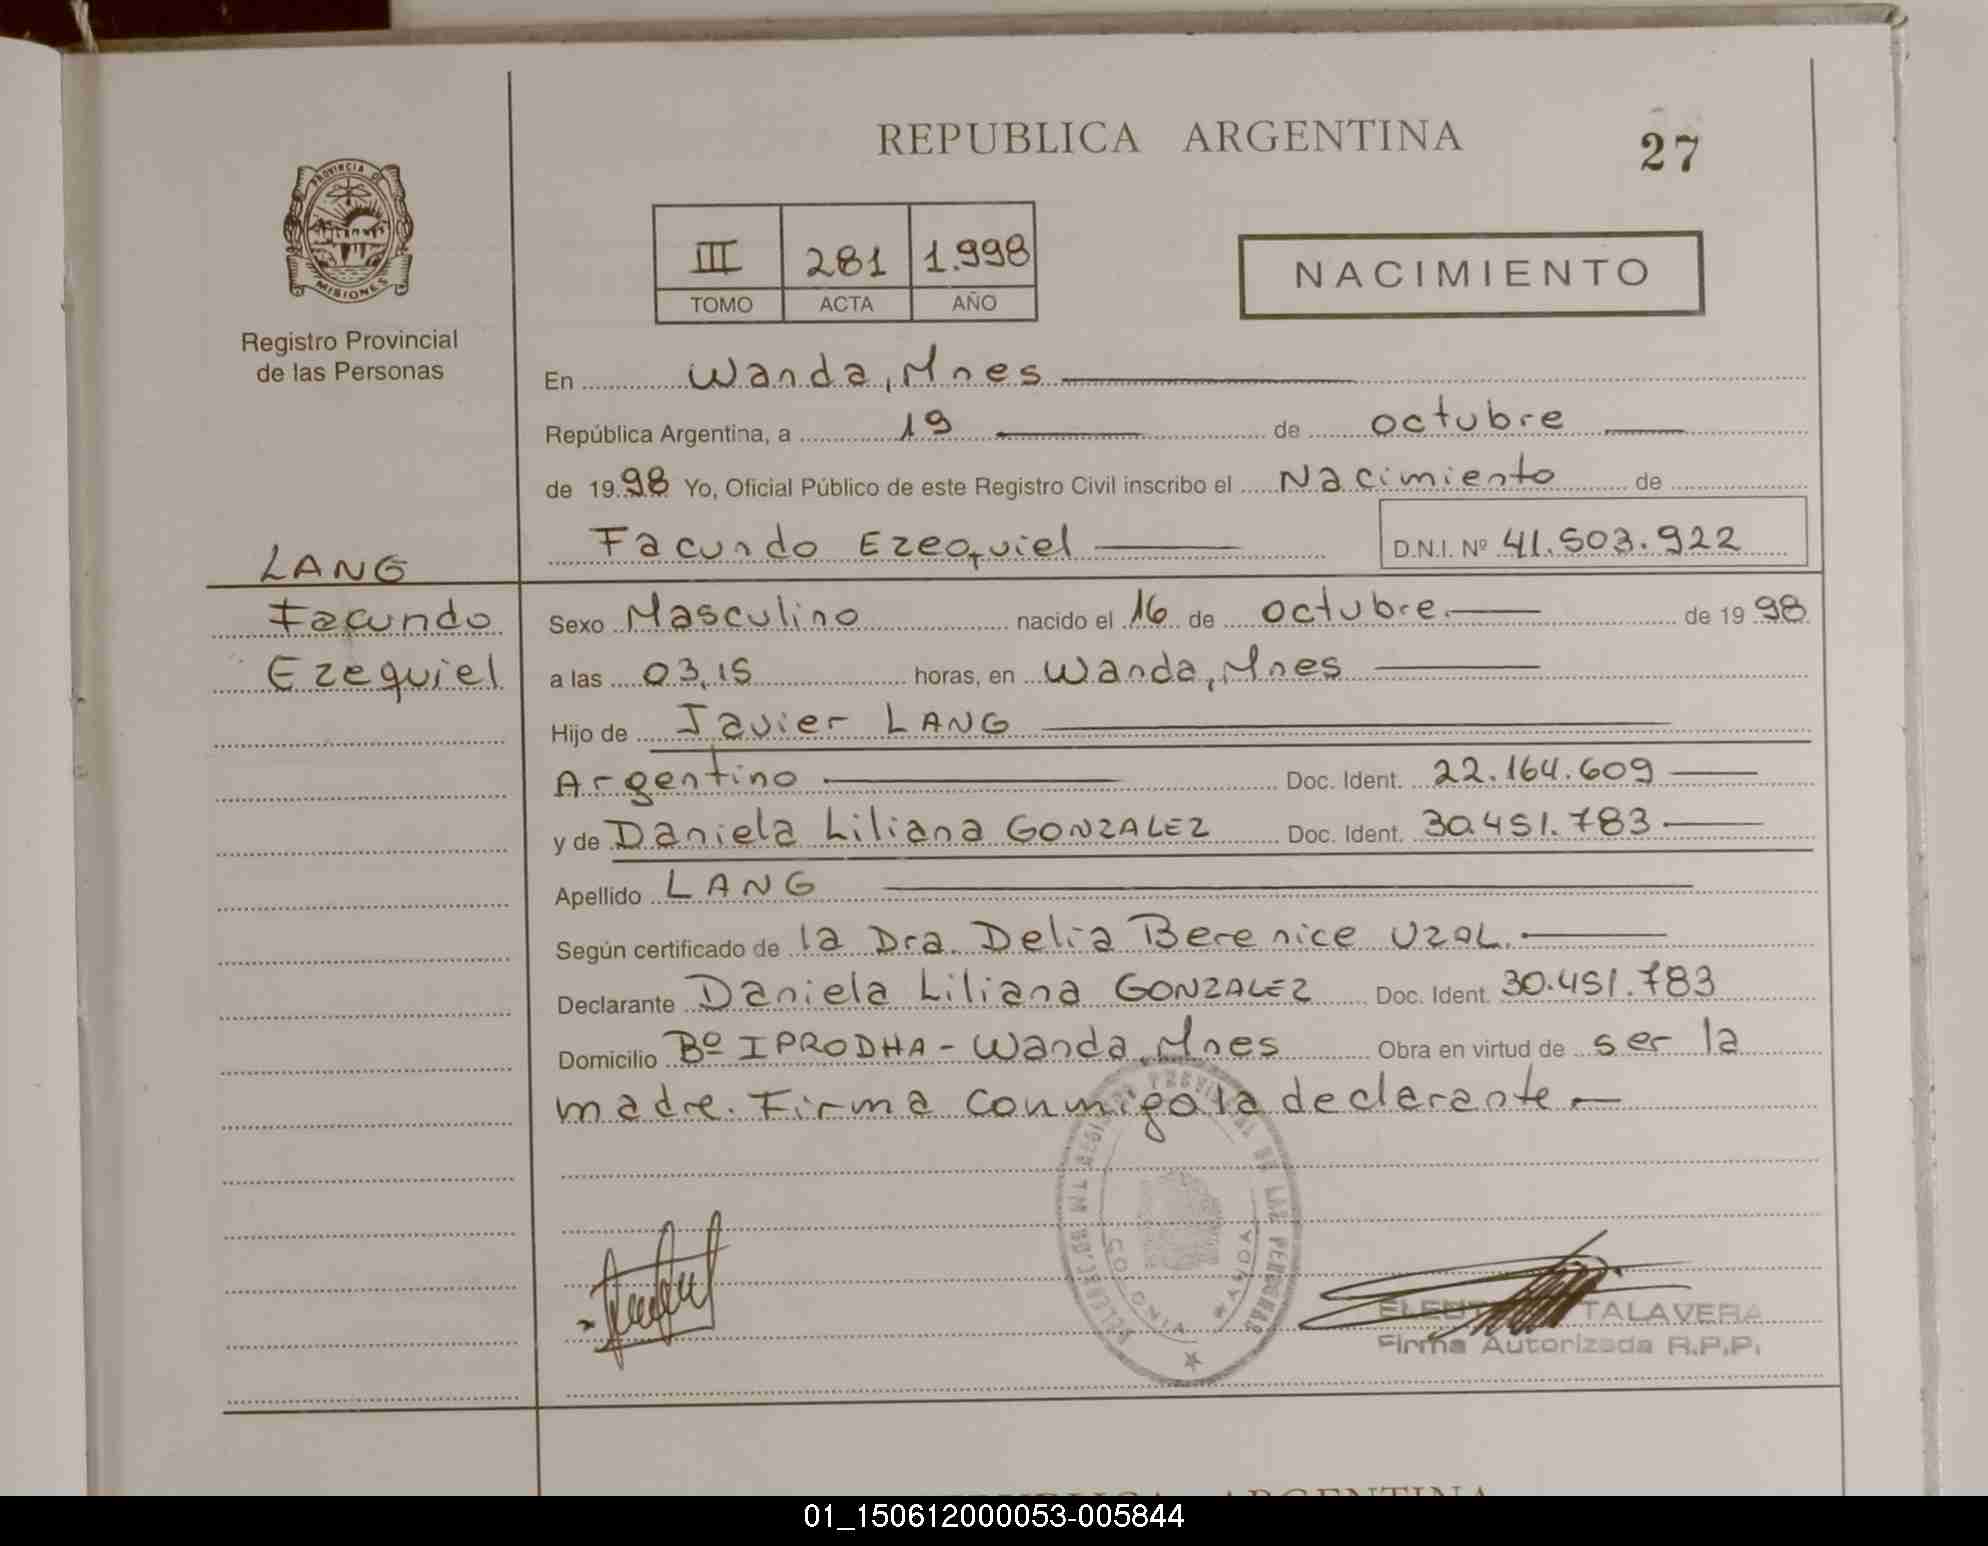 REPUBLICA ARGENTINA
27
PROVINCIA DE
MISIONES
Registro Provincial
de las Personas
III 281 1.998
TOMO ACTA AÑO
NACIMIENTO
En Wanda, Mnes
República Argentina, a 19 de octubre
de 1998 Yo, Oficial Público de este Registro Civil inscribo el Nacimiento de
Facundo Ezequiel D.N.I. Nº 41.503.922
LANG
Facundo
Ezequiel
Sexo Masculino nacido el 16 de octubre de 1998
a las 03,15 horas, en Wanda, Mnes
Hijo de Javier LANG
Argentino Doc. Ident. 22.164.609
y de Daniela Liliana GONZALEZ Doc. Ident. 30.451.783
Apellido LANG
Según certificado de la Dra. Delia Berenice UZAL.
Declarante Daniela Liliana GONZALEZ Doc. Ident. 30.451.783
Domicilio Bº IPRODHA - Wanda, Mnes Obra en virtud de ser la
madre. Firma conmigo la declarante
DE LAS PERSONAS
WANDA
TALAVERA
Firma Autorizada R.P.P.
REPUBLICA ARGENTINA
01_150612000053-005844